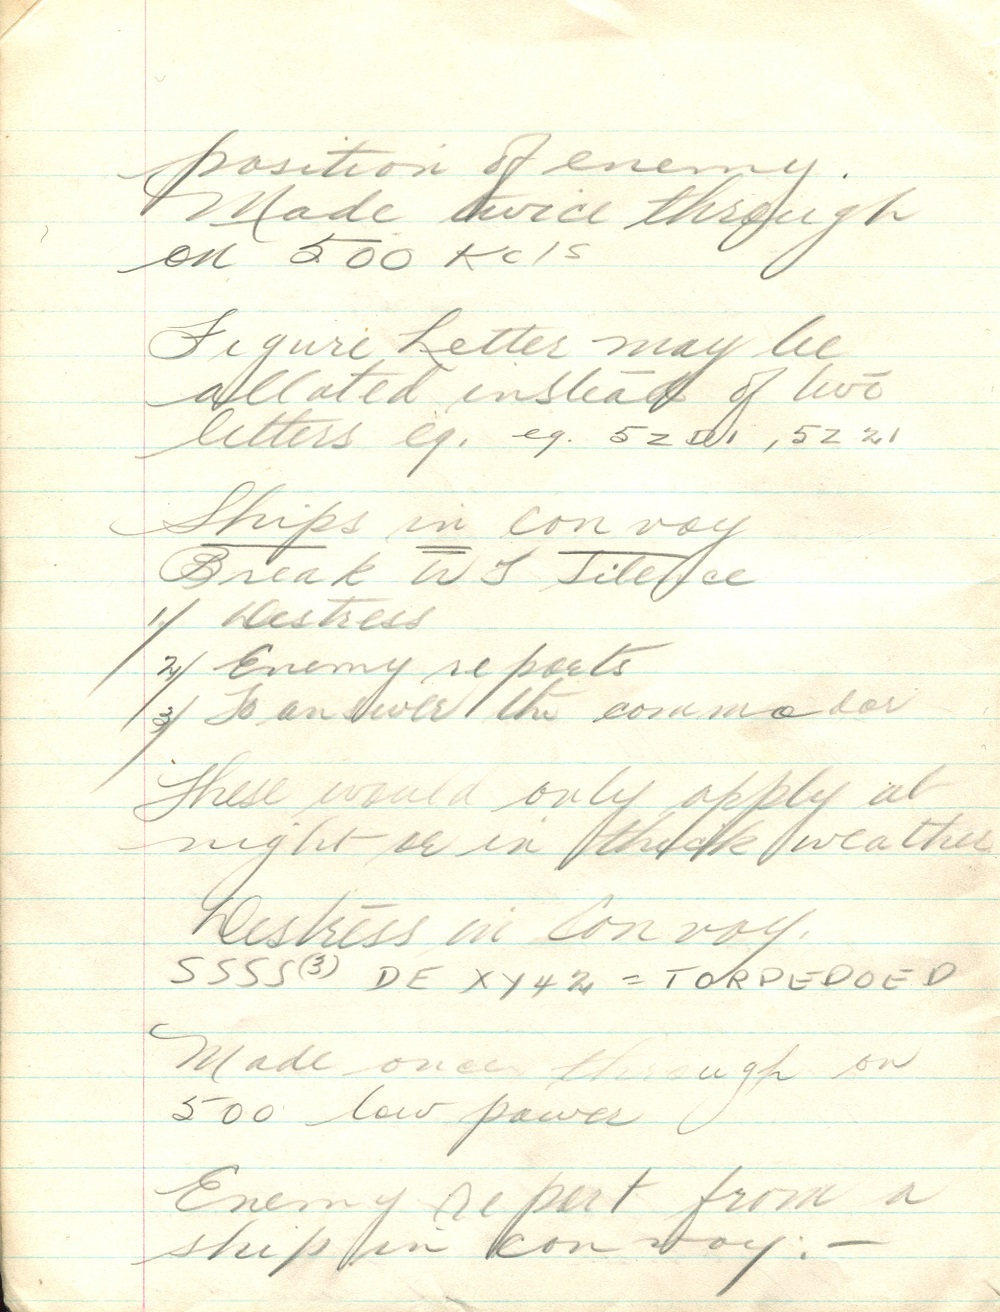 position of enemy.
Made twice through
on 500 Kc/s
Figure Letter may be
allated instead of two
letters eg. eg. 5Z , 5Z 21
Ships in convoy
Break W T Silence
1/ Destress
2/ Enemy reports
3/ To answer the commodor
These would only apply at
night or in thick weather
Destress in Convoy.
SSSS(3) DE XY42 = TORPEDOED
Made once through on
500 low power
Enemy report from a
ship in convoy:-